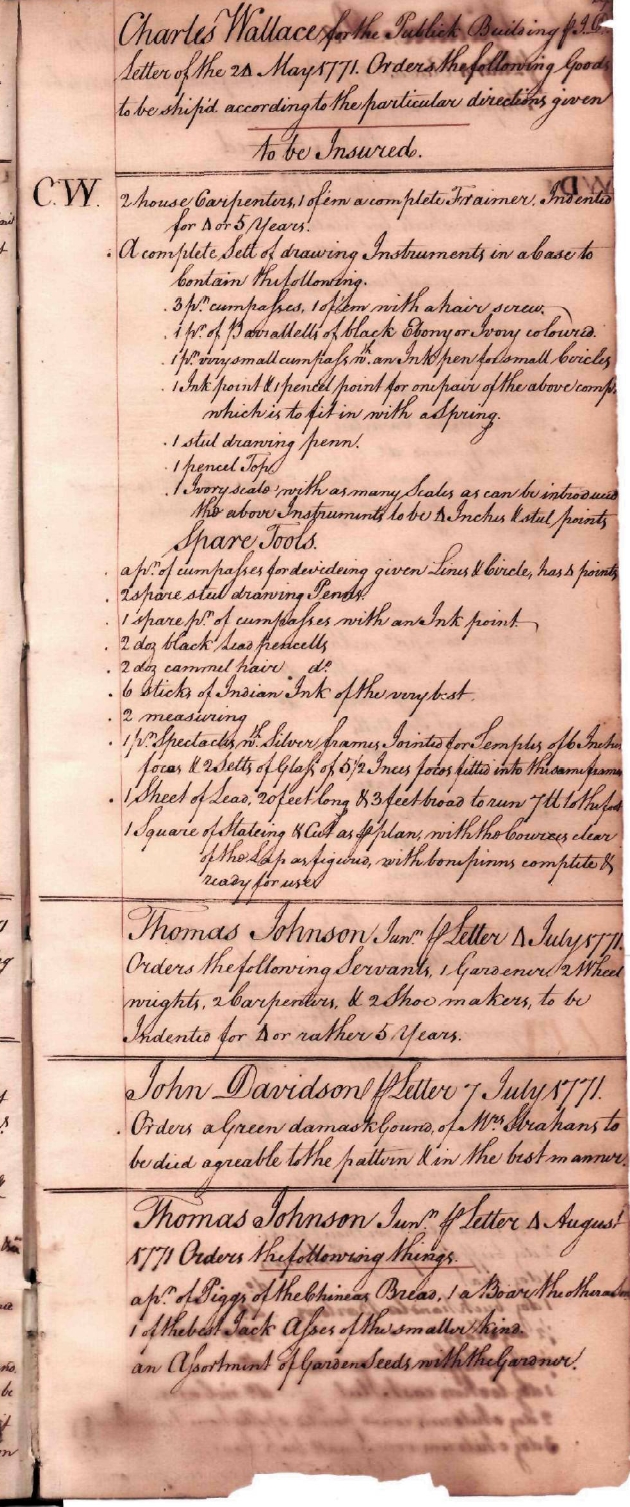 Charles Wallace for the Publick Building ⅌ J.C.
Letter of the 24 May 1771. Orders the following Goods
to be ship'd according to the particular directions given
to be Insured.
C.W. 2 house Carpenters, 1 of 'em a complete Fraimer. Indented
for 4 or 5 Years.
A complete Sett of drawing Instruments in a Case to
Contain the following.
3 pr. cumpasses, 1 of 'em with a hair screw.
1 pr. of Parrallells of black Ebony or Ivory coloured.
1 pr. very small cumpass wth. an Ink pen for small Circles
1 Ink point & 1 pencel point for one pair of the above comps.
which is to fit in with a Spring.
1 steel drawing penn.
1 pencel Top.
1 Ivory scale, with as many Scales as can be introduced
the above Instruments to be 4 Inches & steel points
Spare Tools.
a pr. of cumpasses for devideing given Lines & Circle, has 4 points
2 spare steel drawing Penns.
1 spare pr. of cumpasses with an Ink point
2 doz black Lead pencells
2 doz cammel hair do.
6 sticks of Indian Ink of the very best.
2 measuring
1 pr. Spectacles, wth. Silver frames Jointed for Temples of 6 Inches
focas & 2 Setts of Glass of 5 1/2 Inces focos fitted into the same frames
1 Sheet of Lead, 20 feet long & 3 feet broad to run 7 ll to the foot
1 Square of Slateing & Cut as ⅌ plan, with the Cources clear
of the Lap as figured, with bone pinns complete &
ready for use
Thomas Johnson Junr. ⅌ Letter 4 July 1771.
Orders the following Servants, 1 Gardener, 2 Wheel
wrights, 2 Carpenters, & 2 Shoe makers, to be
Indented for 4 or rather 5 Years.
John Davidson ⅌ Letter 7 July 1771.
Orders a Green damask Gound, of Mrs. Strahans to
be died agreable to the pattern & in the best manner.
Thomas Johnson Junr. ⅌ Letter 4 August
1771 Orders the following things.
a pr. of Piggs of the Chineas Bread, 1 a Boar the other a
1 of the best Jack Asses of the smaller kind.
an Assortment of Garden Seeds with the Gardner.